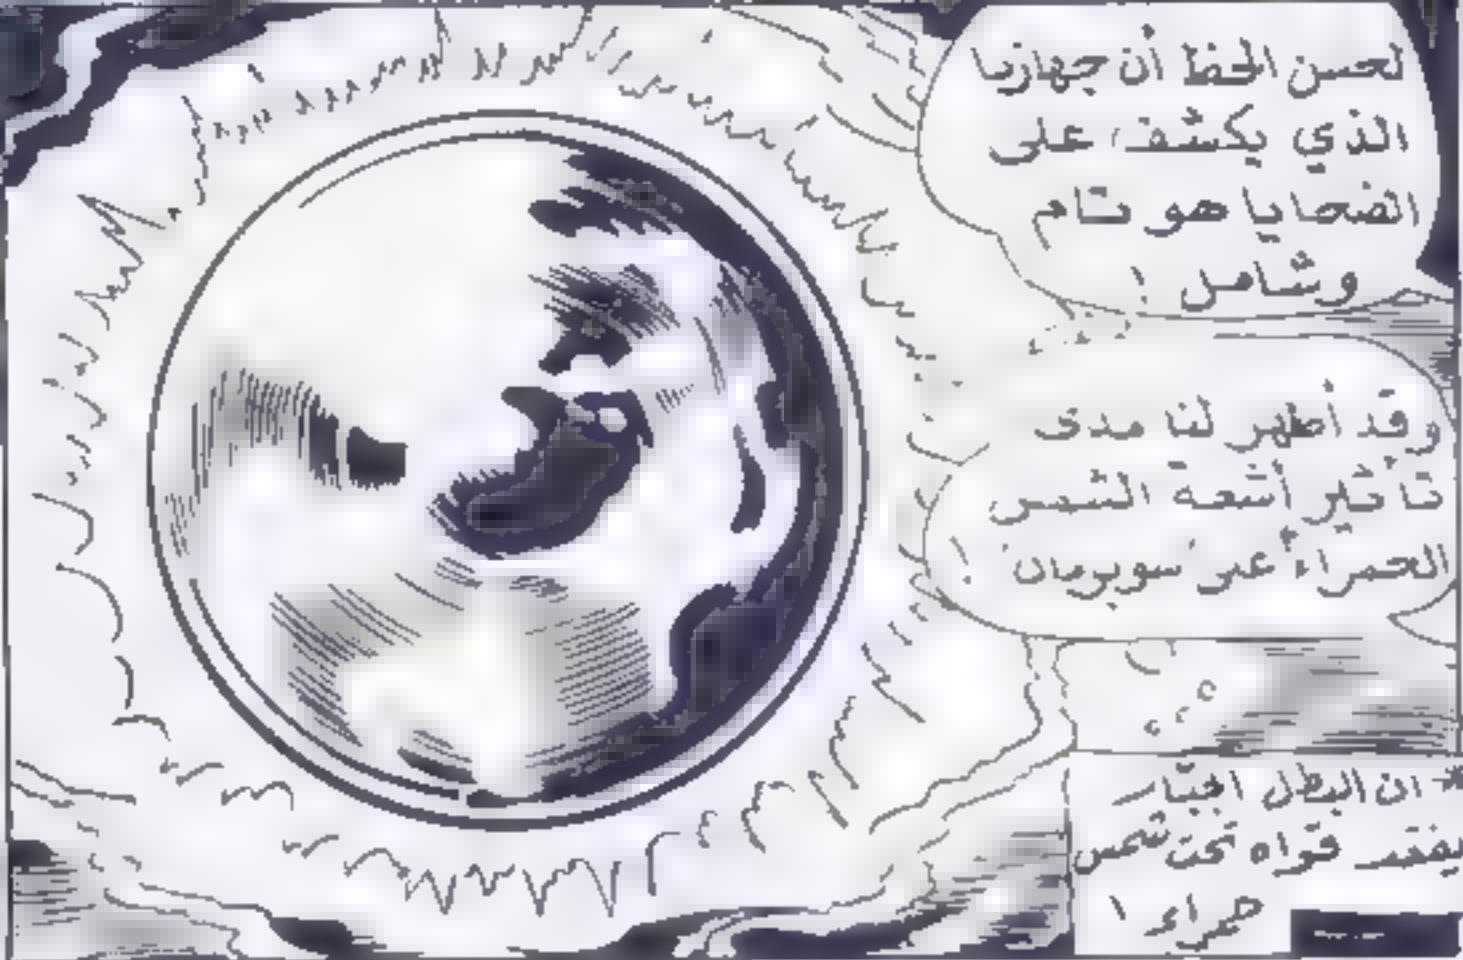 لحسن الحظ أن جهازنا
الذي يكشف على
الضحايا هو تام
وشامل !
وقد أظهر لنا مدى
تأثير أشعة الشمس
الحمراء على سوبرمان !
* ان البطل الجبّار
يفقد قواه تحت شمس
حمراء !